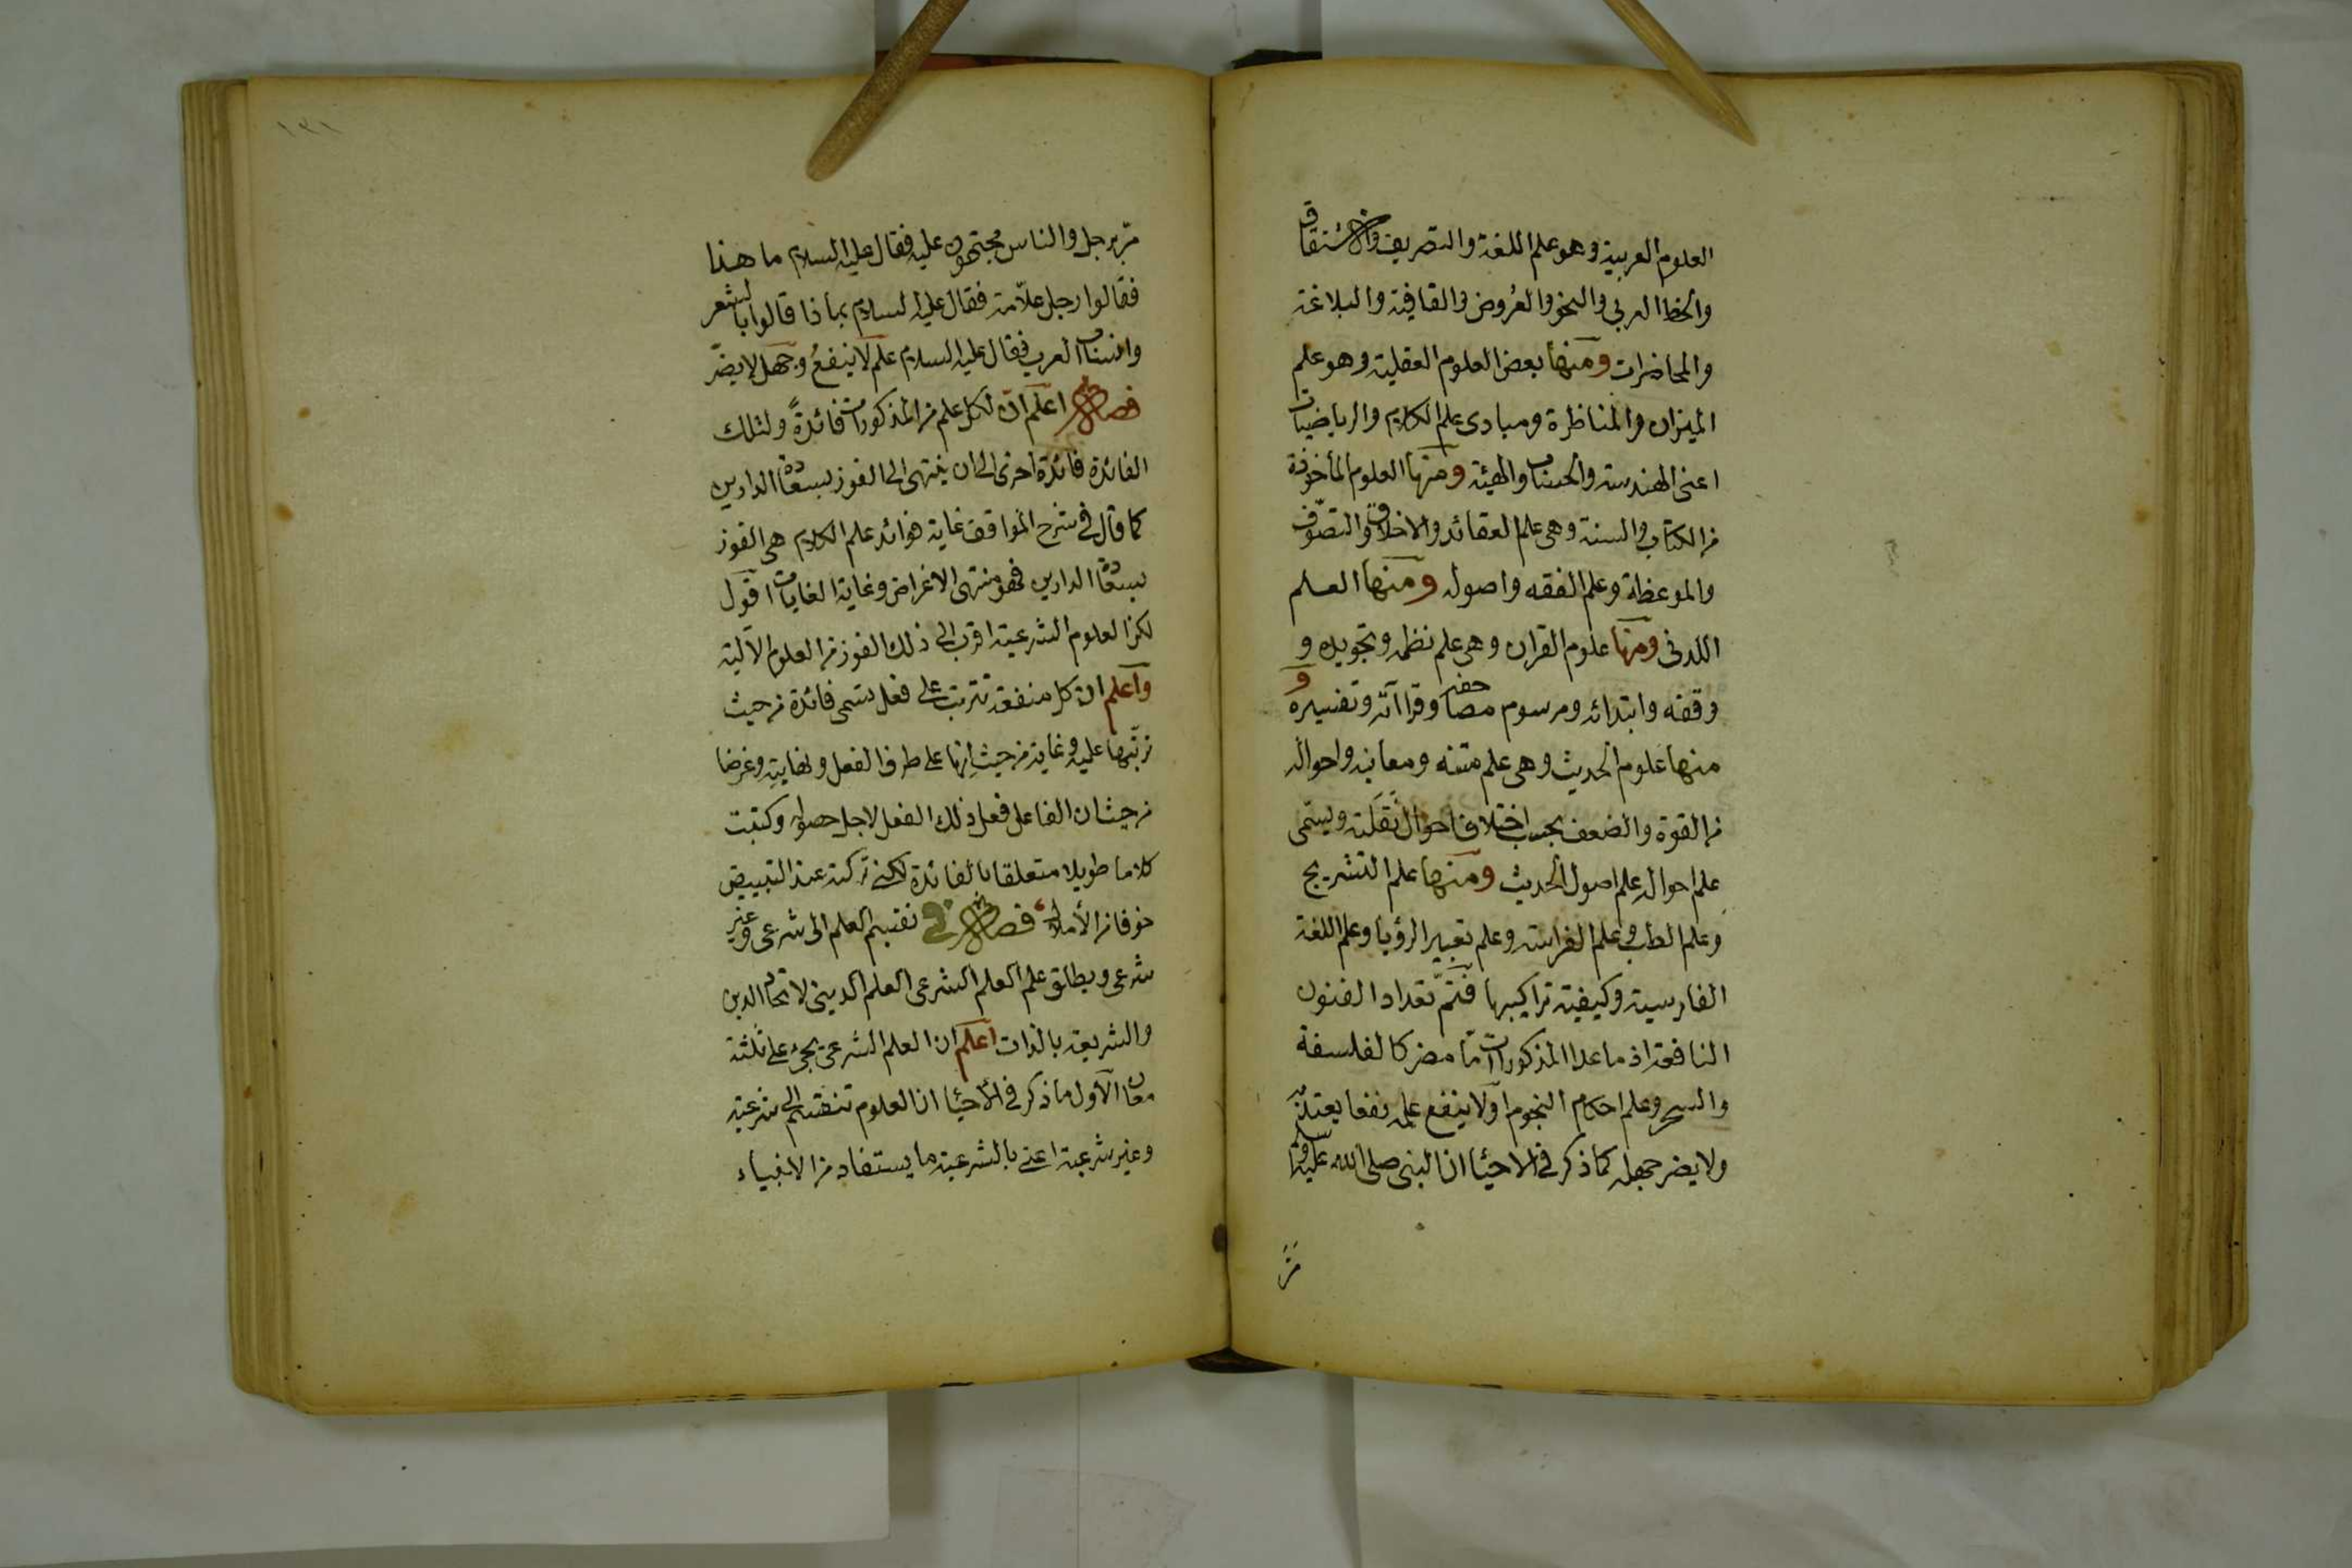 العلوم العربية وهو علم اللغة والتصريف والاشتقاق
والخط العربي والنحو والعروض والقافية والبلاغة
والمحاضرات ومنها بعض العلوم العقلية وهو علم
الميزان والمناظرة ومبادى علم الكلام والرياضيات
اعنى الهندسة والحساب والهيئة ومنها العلوم المأخوذة
من الكتاب والسنة وهى علم العقائد والاخلاق والتصوّف
والموعظة وعلم الفقه واصوله ومنها العلم
اللدنى ومنها علوم القران وهى علم نظمه وتجويده و
وقفه وابتدائه ومرسوم مصاحفه وقراآته وتفسيره و
منها علوم الحديث وهى علم متنه ومعانيه واحواله
من القوة والضعف بحسب اختلاف احوال نَقَلَته ويسمى
علم احواله علم اصول الحديث ومنها علم التشريح
وعلم الطب وعلم الفراسة وعلم تعبير الرؤيا وعلم اللغة
الفارسية وكيفية تراكيبها فتمّ تعداد الفنون
النافعة اذ ما عدا المذكورات امّا مضر كالفلسفة
والسحر وعلم احكام النجوم اولا ينفع علمه نفعا يعتدّ به
ولا يضر جهله كما ذكر فى الاحياء ان النبى صلى الله عليه وسلم
مرّ
١٣١
مرّ برجل والناس مجتمعون عليه فقال عليه السلام ما هذا
فقالوا رجل علّامة فقال عليه السلام بماذا قالوا بالشعر
وانساب العرب فقال عليه السلام علم لا ينفعُ وجهل لا يضرّ
فصل اعلم انّ لكل علم من المذكورات فائدةً ولتلك
الفائدة فائدة اخرى الى ان ينتهى الى الفوز بسعادة الدارين
كما قال فى شرح المواقف غاية فوائد علم الكلام هى الفوز
بسعادة الدارين فهو منتهى الاغراض وغاية الغايات اقول
لكن العلوم الشرعية اقرب الى ذلك الفوز من العلوم الآلية
واعلم ان كل منفعة تترتب على فعل يسمى فائدة من حيث
ترتبها عليه وغاية من حيث انها على طرف الفعل ونهايته وغرضا
من حيث ان الفاعل فعل ذلك الفعل لاجل حصوله وكتبت
كلاما طويلا متعلقا بالفائدة لكنى تركته عند التبييض
خوفا من الأملال فصل فى تقسيم العلم الى شرعى وغير
شرعى ويطلق على العلم الشرعى العلم الدينى لاتحاد الدين
والشريعة بالذات اعلم ان العلم الشرعى يجئ على ثلثة
معان الاول ما ذكر فى الأحياء ان العلوم تنقسم الى شرعية
وغير شرعية اعنى بالشرعية ما يستفاد من الانبياء